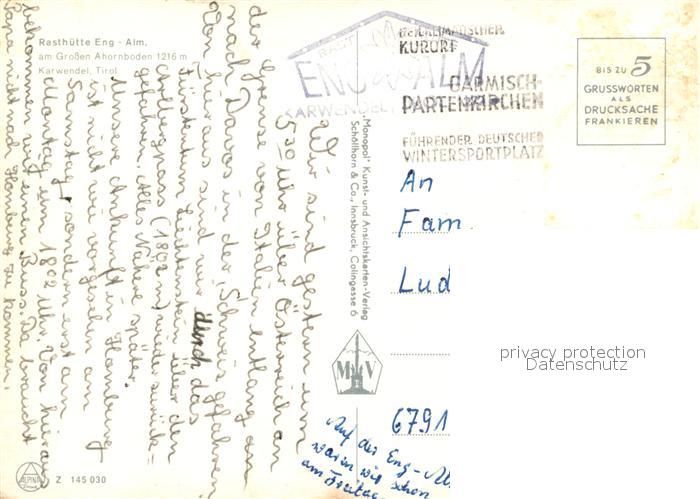 Rasthütte Eng - Alm,
am Großen Ahornboden 1216 m
Karwendel, Tirol
Wir sind gestern um
5 30 Uhr über Österreich an
der Grense von Italien entlang an
nach Davos in der Schweis gefahren
Von hieraus sind wir durch das
Fürstentum Liechtenstein über den
Arlbergpass (1802 m) wieder zurück=
gefahren. Alles Nähere später.
Unsere Ankunft in Homburg
ist nicht wie vorgesehn am
Samstag, sondern erst am
Montag um 1802 Uhr. Von hieraus
bekommen wir einen Buss. Da braucht
Papa nicht nach Homburg zu kommen.
ALPINA
Druck
Z 145 030
"Monopol" Kunst- und Ansichtskarten-Verlag
Schöllhorn & Co., Innsbruck, Colingasse 6
MV
RAST
ENG ALM
KARWENDEL
HEILKLIMATISCHER
KURORT
GARMISCH-
PARTENKIRCHEN
FÜHRENDER DEUTSCHER
WINTERSPORTPLATZ
BIS ZU 5
GRUSSWORTEN
ALS
DRUCKSACHE
FRANKIEREN
An
Fam
Lud
6791
privacy protection
Datenschutz
Auf der Eng-Al
waren wir schon
am Freitag.